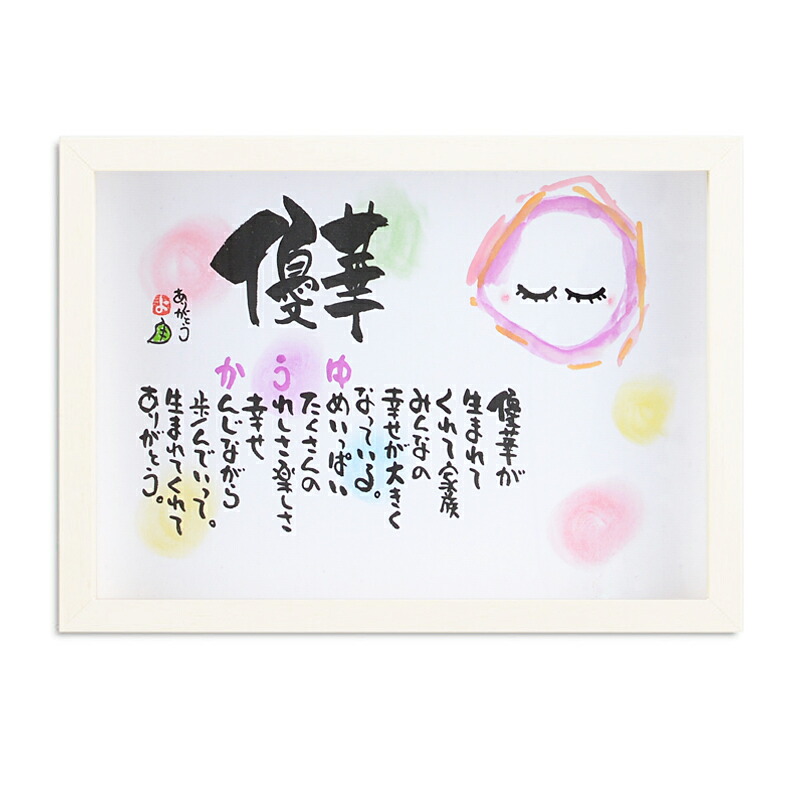 優華
ありがとう
優華が
生まれて
くれて家族
みんなの
幸せが大きく
なっている。
ゆめいっぱい
たくさんの
うれしさ楽しさ
幸せ
かんじながら
歩んでいって。
生まれてくれて
ありがとう。